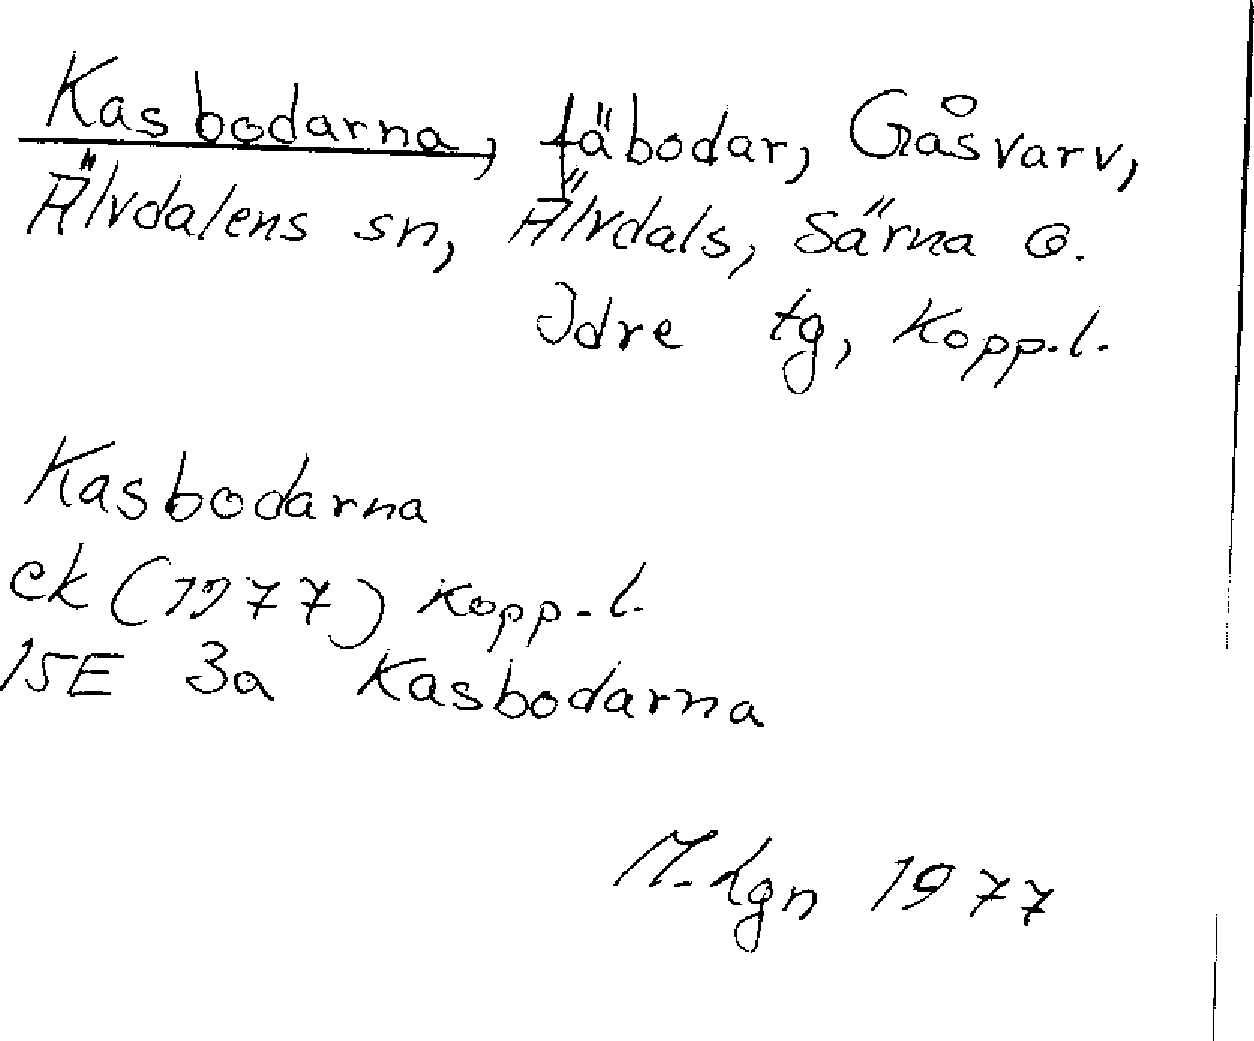 Kasbodarna, fäbodar, Gåsvarv,
Älvdalens sn, Älvdals, Särna o.
Idre tg, Kopp.l.
Kasbodarna
ek (1977) Kopp.l.
15E 3a Kasbodarna
M.Lgn 1977